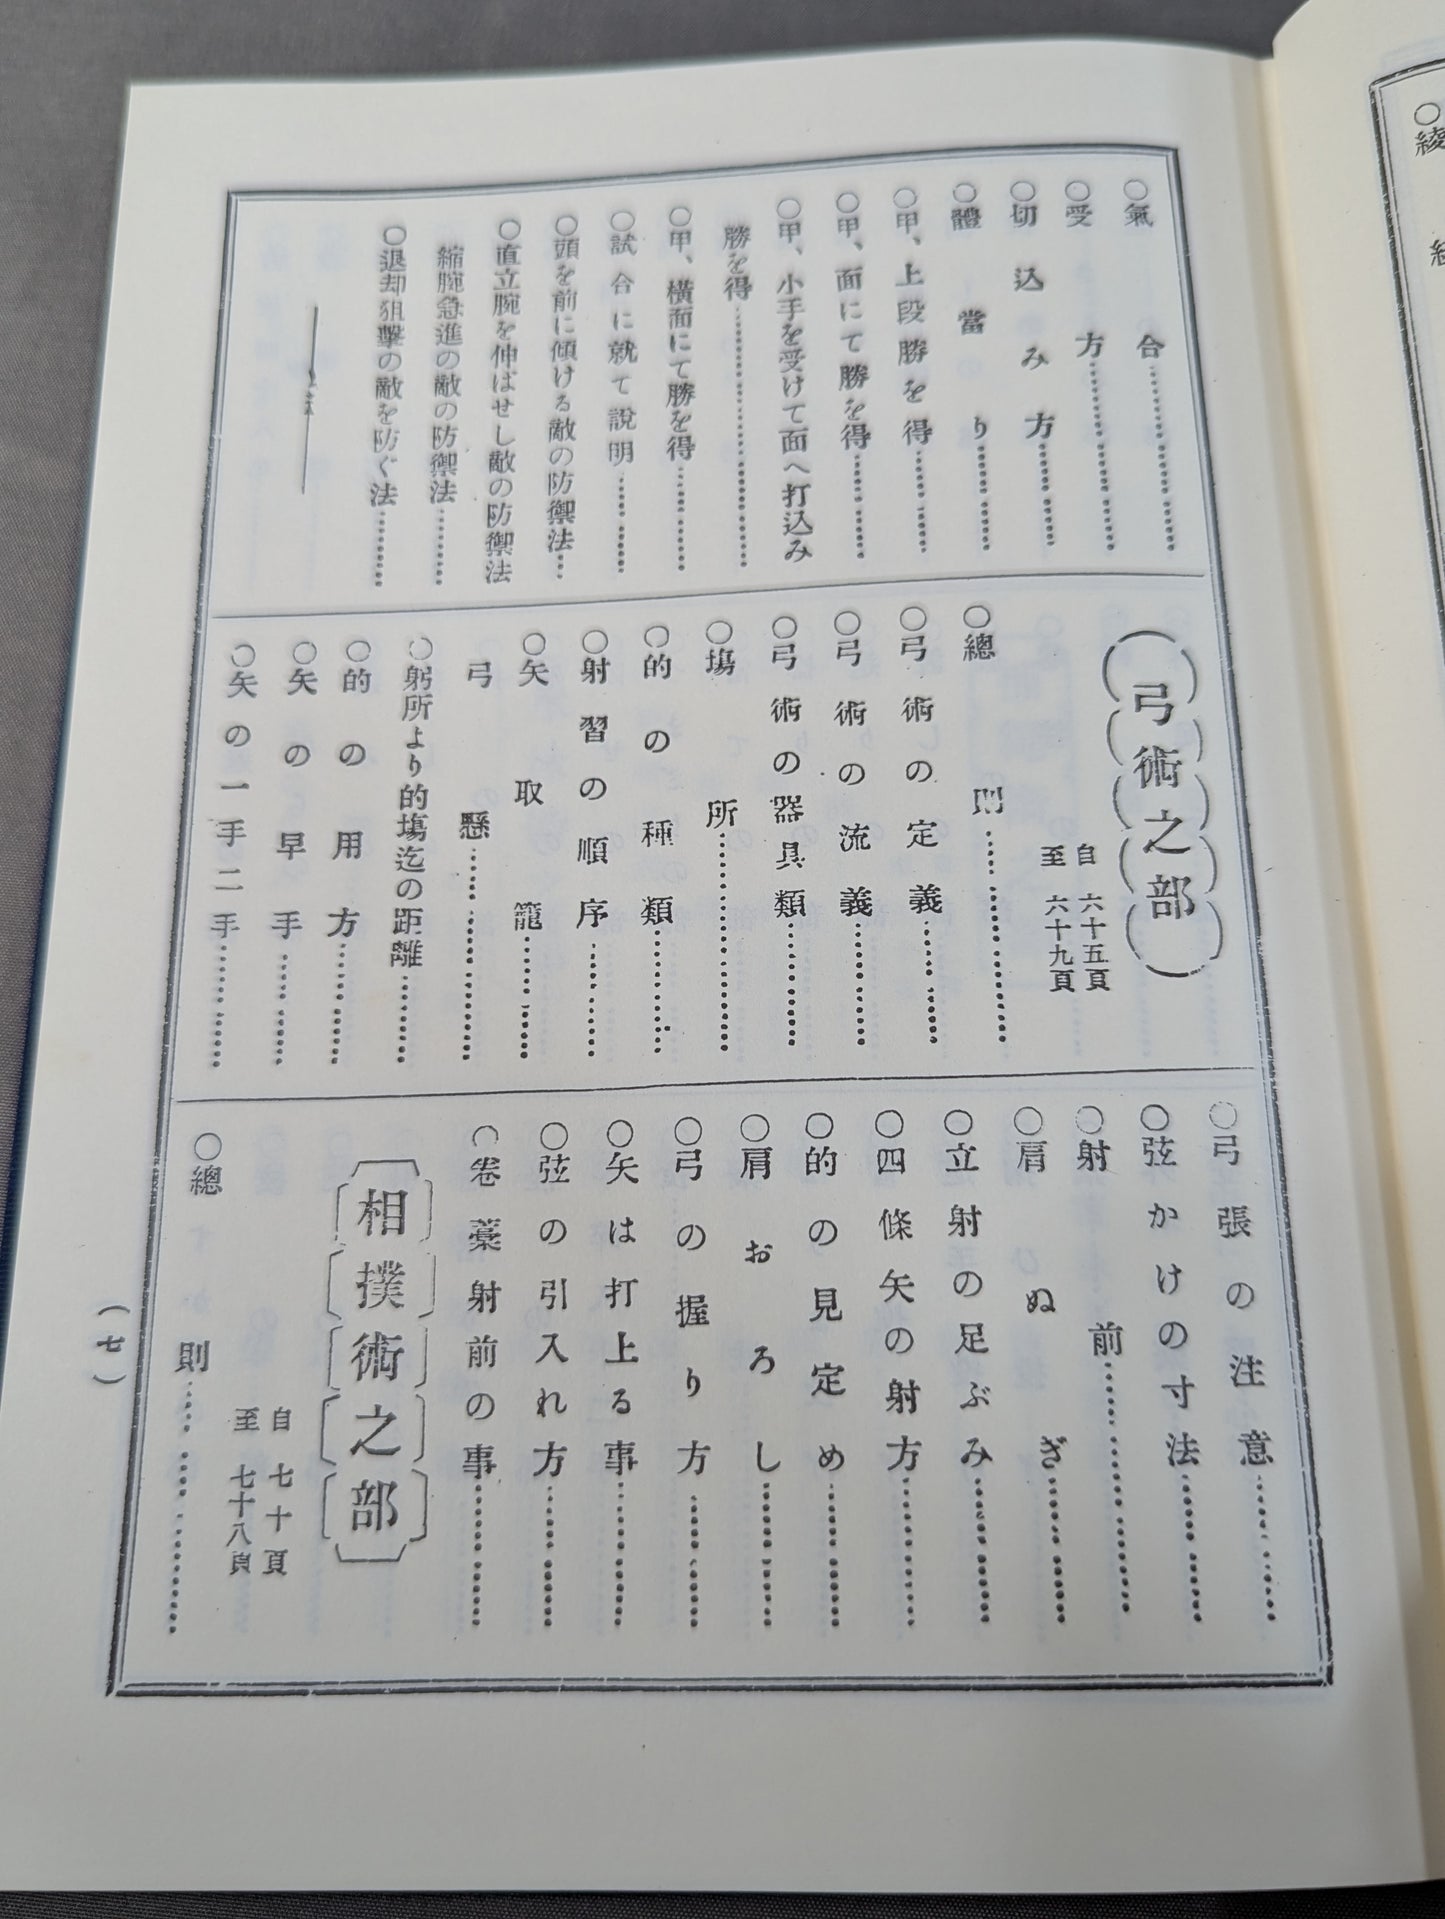 ○氣合
○受方
○切込み方
○體當り
○甲、上段勝を得
○甲、面にて勝を得
○甲、小手を受けて面へ打込み
勝を得
○甲、橫面にて勝を得
○試合に就て說明
○頭を前に傾ける敵の防禦法
○直立腕を伸ばせし敵の防禦法
縮腕急進の敵の防禦法
○退却狙擊の敵を防ぐ法
弓術之部
自 六十五頁
至 六十九頁
○總則
○弓術の定義
○弓術の流義
○弓術の器具類
○塲所
○的の種類
○射習の順序
○矢取籠
弓懸
○躬所より的塲迄の距離
○的の用方
○矢の早手
○矢の一手二手
○弓張の注意
○弦かけの寸法
○射前
○肩ぬぎ
○立射の足ぶみ
○四條矢の射方
○的の見定め
○肩おろし
○弓の握り方
○矢は打上る事
○弦の引入れ方
○卷藁射前の事
相撲術之部
自 七十頁
至 七十八頁
○總則
(七)
○綾